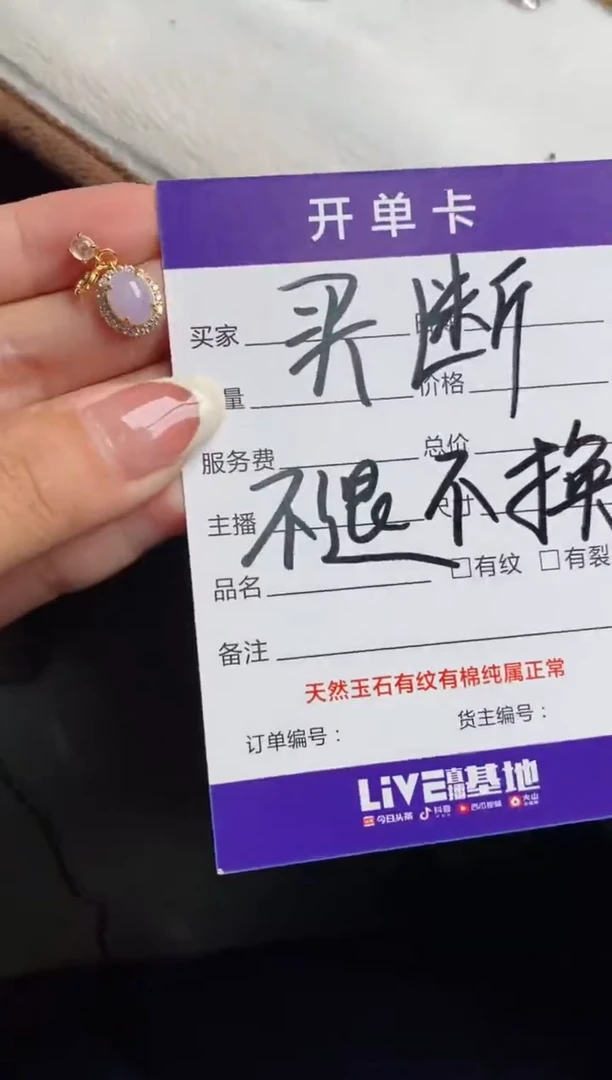 开单卡
买断
买家
量
价格
服务费
总价
不退不换
主播
品名
□有纹 □有裂
备注
天然玉石有纹有棉纯属正常
订单编号：
货主编号：
LiVE直播基地
今日头条 抖音 西瓜视频 火山